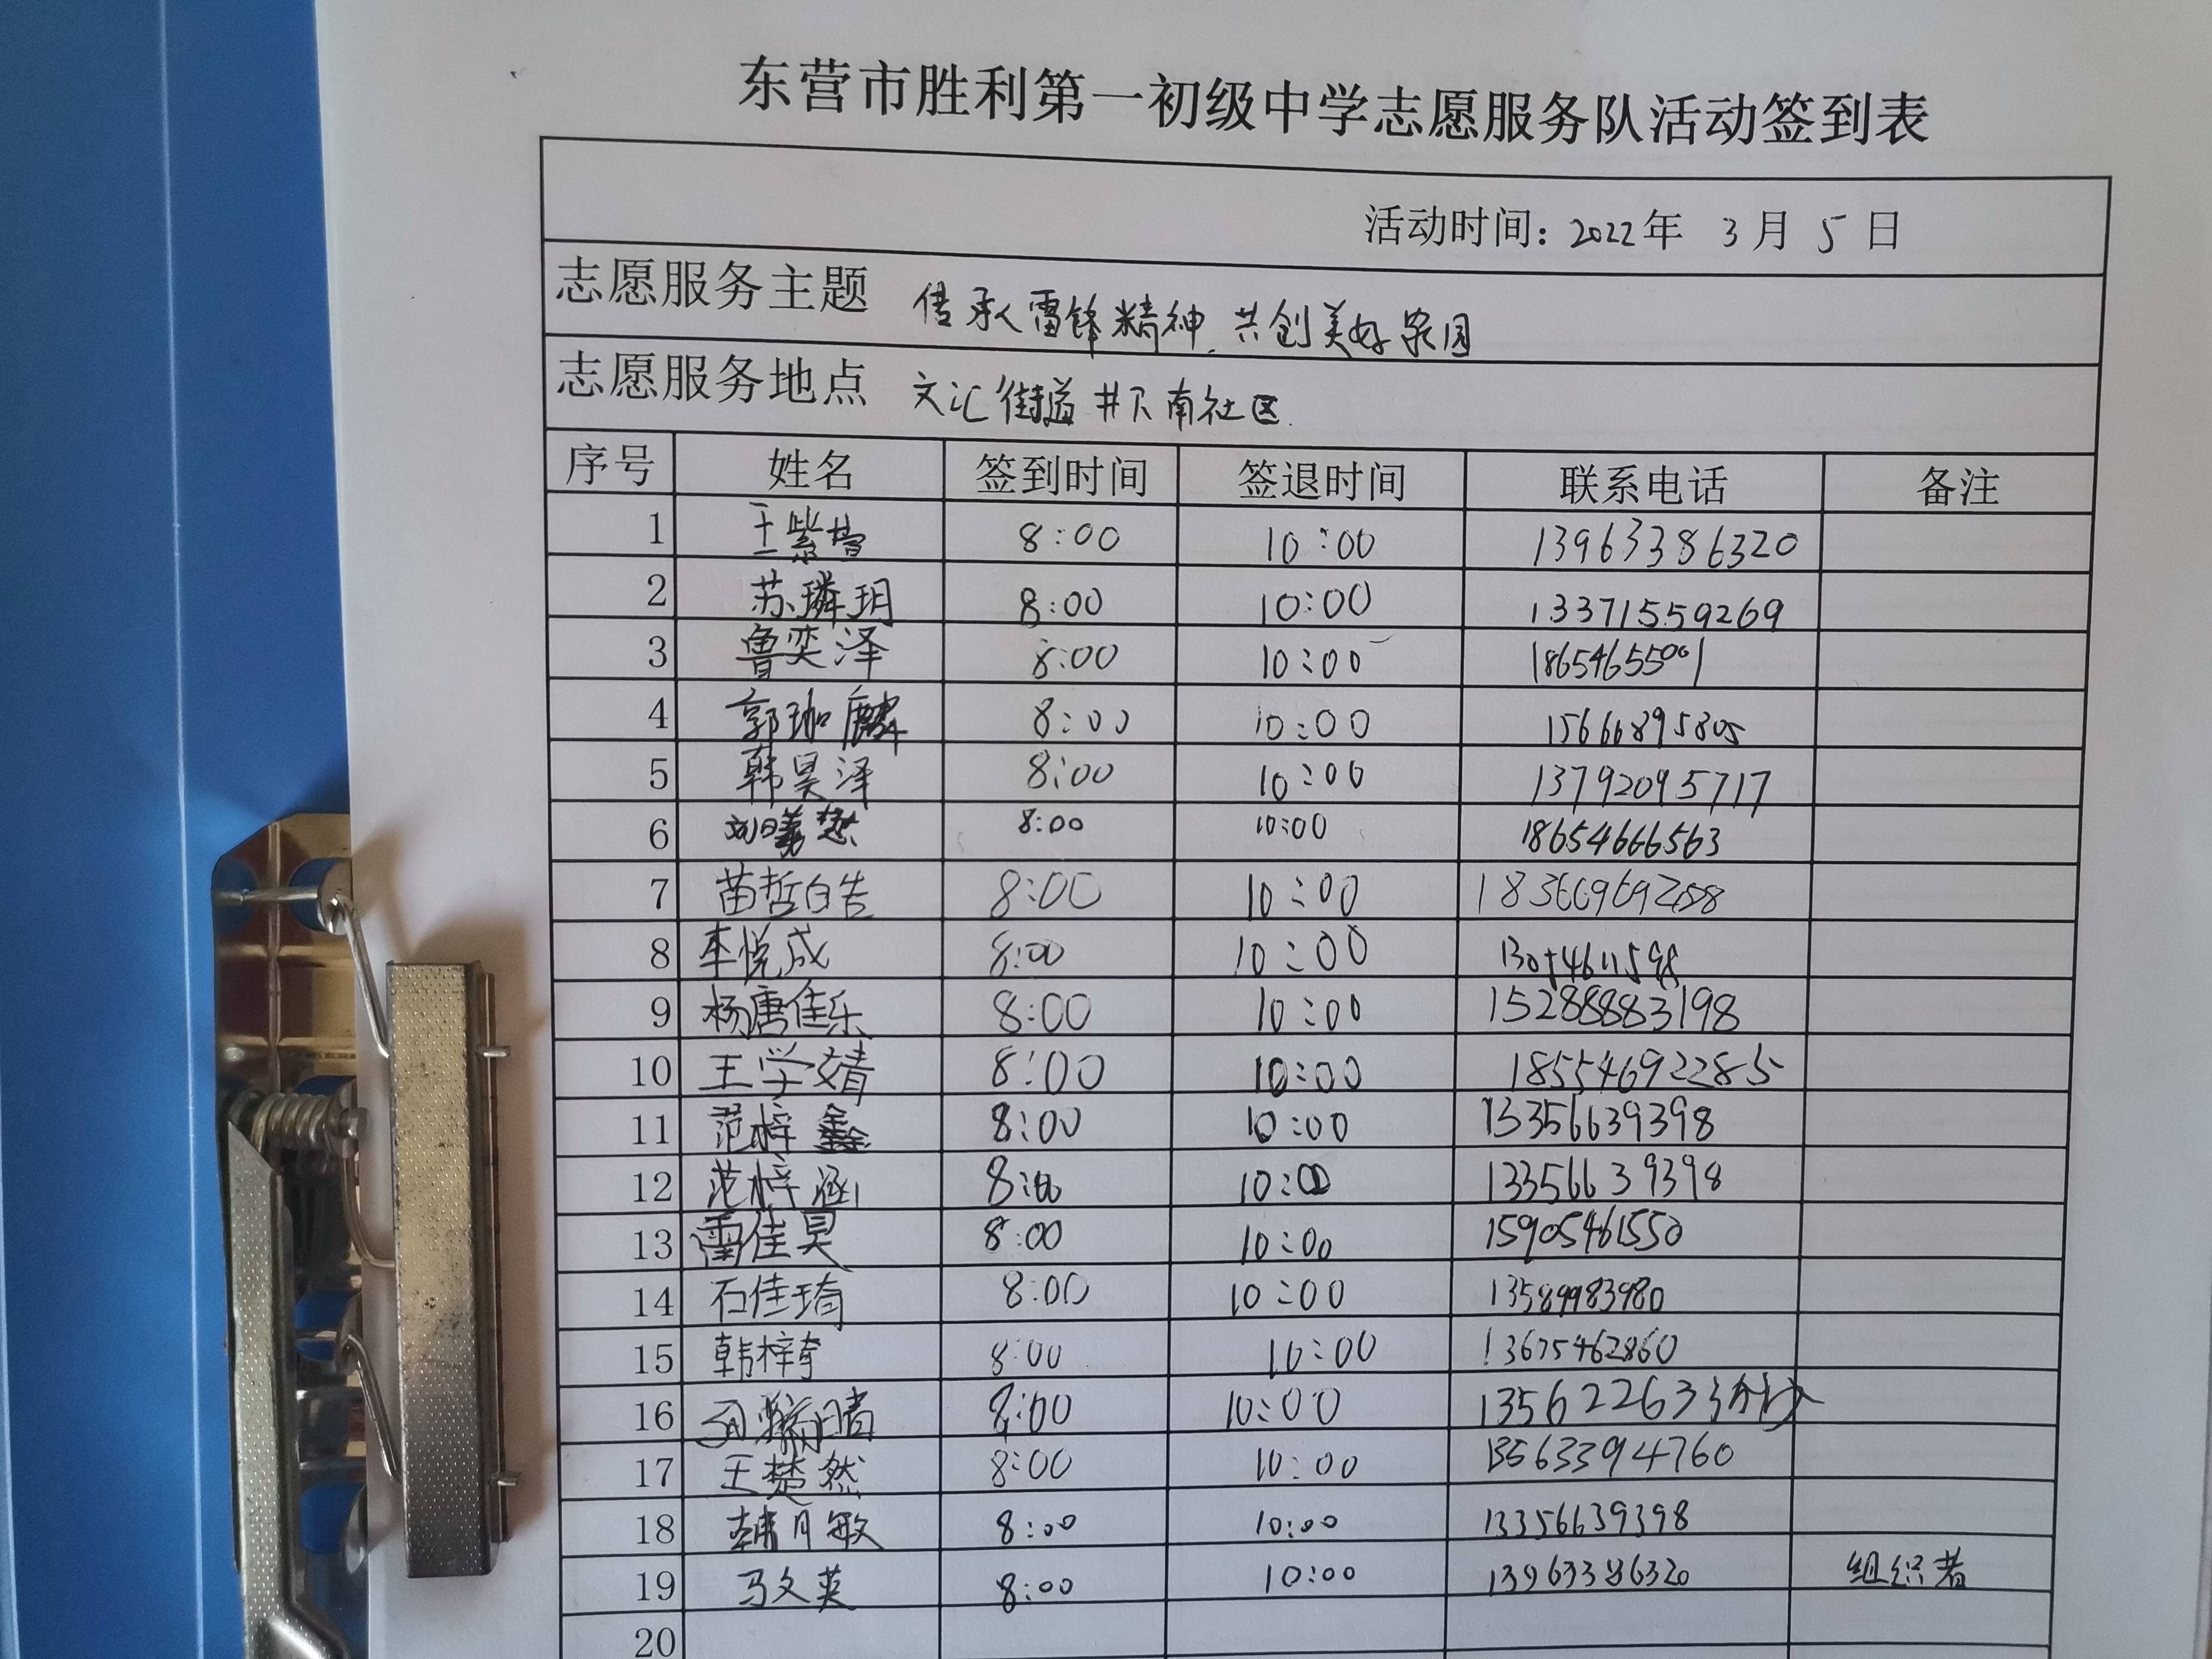 东营市胜利第一初级中学志愿服务队活动签到表
活动时间：2022年 3月 5日
志愿服务主题 传承雷锋精神，共创美好家园
志愿服务地点 文汇街道井下南社区.
序号 姓名 签到时间 签退时间 联系电话 备注
1 王紫 8:00 10:00 13963386320
2 苏璘玥 8:00 10:00 13371559269
3 鲁奕泽 8:00 10:00 18654655001
4 郭珈麟 8:00 10:00 15666895805
5 韩昊泽 8:00 10:00 13792095717
6 刘曦 8:00 10:00 18654666563
7 苗哲皓 8:00 10:00
8 李悦成 8:00 10:00 13054611598
9 杨唐佳乐 8:00 10:00 15288883198
10 王学婧 8:00 10:00 18554692285
11 范梓鑫 8:00 10:00 13356639398
12 范梓涵 8:00 10:00 13356639398
13 雷佳昊 8:00 10:00 15905461550
14 石佳琦 8:00 10:00 13589983980
15 韩梓 8:00 10:00 13675462860
16 8:00 10:00
17 王楚然 8:00 10:00 13563394760
18 月敏 8:00 10:00 13356639398
19 马文英 8:00 10:00 13963386320 组织者
20